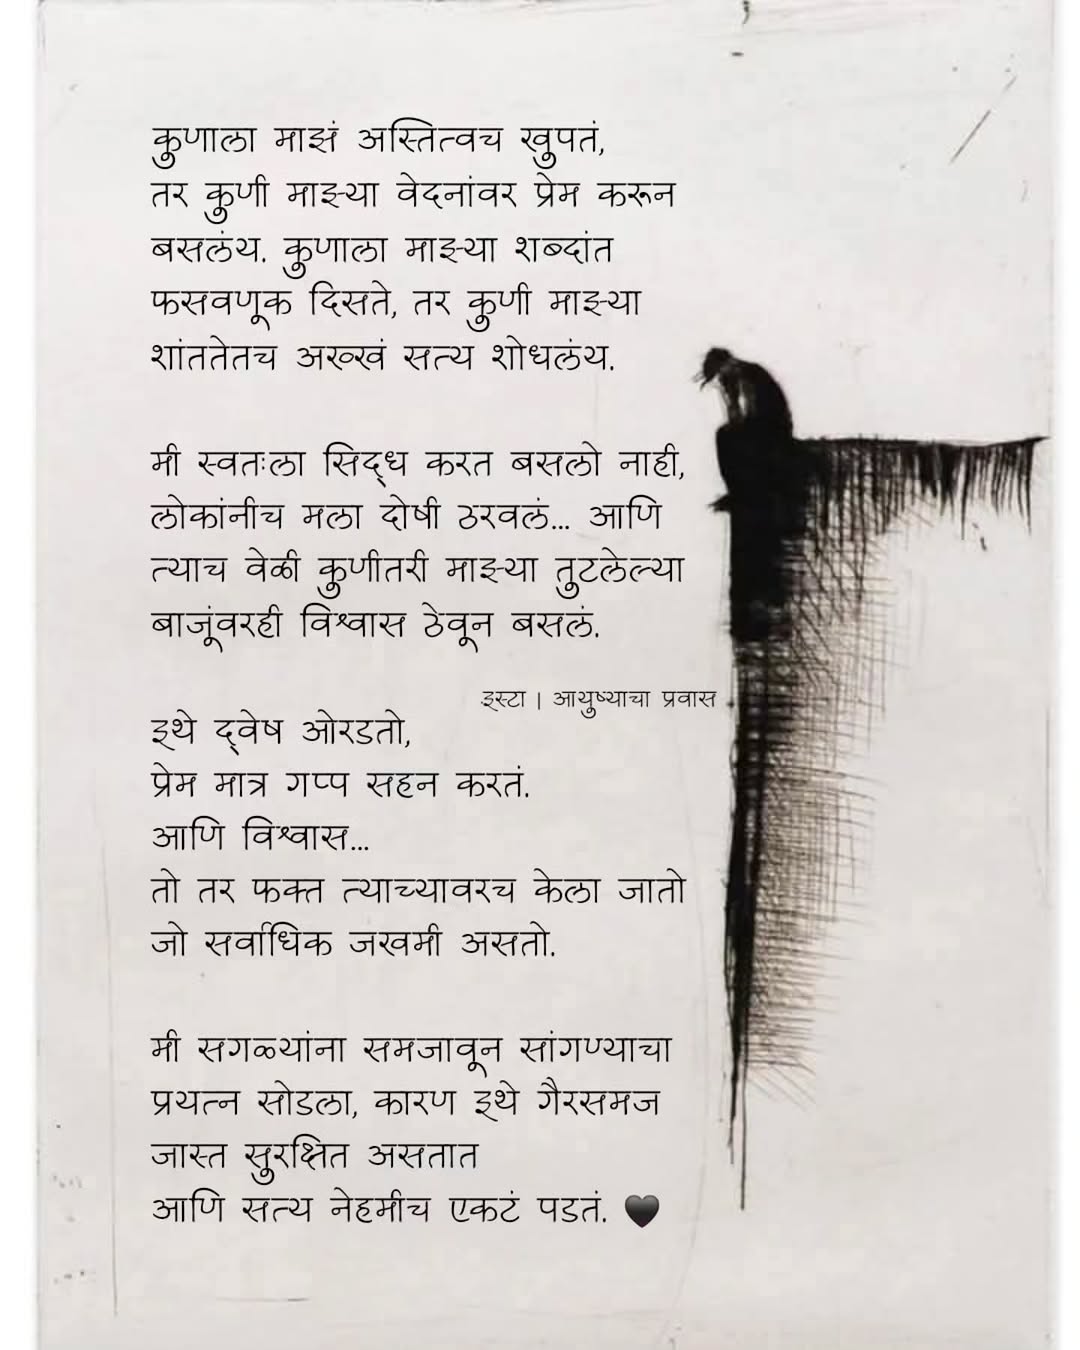 कुणाला माझं अस्तित्वच खुपतं,
तर कुणी माझ्या वेदनांवर प्रेम करून
बसलंय. कुणाला माझ्या शब्दांत
फसवणूक दिसते, तर कुणी माझ्या
शांततेतच अख्खं सत्य शोधलंय.
मी स्वतःला सिद्ध करत बसलो नाही,
लोकांनीच मला दोषी ठरवलं... आणि
त्याच वेळी कुणीतरी माझ्या तुटलेल्या
बाजूंवरही विश्वास ठेवून बसलं.
इस्टा | आयुष्याचा प्रवास
इथे द्वेष ओरडतो,
प्रेम मात्र गप्प सहन करतं.
आणि विश्वास...
तो तर फक्त त्याच्यावरच केला जातो
जो सर्वाधिक जखमी असतो.
मी सगळ्यांना समजावून सांगण्याचा
प्रयत्न सोडला, कारण इथे गैरसमज
जास्त सुरक्षित असतात
आणि सत्य नेहमीच एकटं पडतं. 🖤